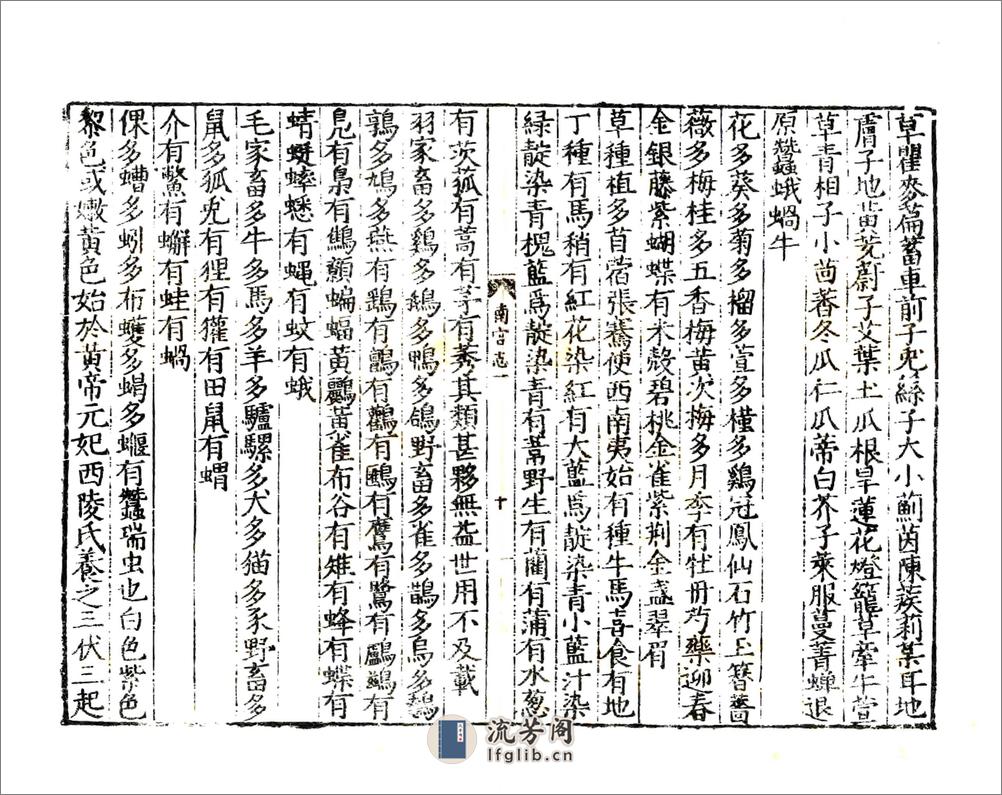 草瞿麥萹蓄車前子兎絲子大小薊茵陳蒺莉某耳地
膚子地黃茺蔚子艾葉土瓜根旱蓮花燈籠草牽牛萱
草青相子小茴香冬瓜仁瓜蒂白芥子萊服蔓菁蟬退
原蠶蛾蝸牛
花多葵多菊多榴多萱多槿多鷄冠鳳仙石竹玉簪薔
薇多梅桂多五香梅黃次梅多月季有牡丹芍藥迎春
金銀藤紫蝴蝶有木殼碧桃金雀紫荆金盞翠眉
草種植多苜蓿張騫使西南夷始有種牛馬喜食有地
丁種有馬稍有紅花染紅有大藍爲靛染青小藍汁染
綠靛染青槐藍爲靛染青有蒿野生有藺有蒲有水葱
南宮志一
十
有茨菰有蒿有茅有莠其類甚夥無益世用不及載
羽家畜多鷄多鵝多鴨多鴿野畜多雀多鵲多烏多鵪
鶉多鳩多燕有鷂有鸇有鸛有鷗有鷹有鷺有鸕鷀有
鳧有梟有鵂鶹蝙蝠黃鸝黃雀布谷有雉有蜂有蝶有
蜻蜓蟋蟋有蝇有蚊有蛾
毛家畜多牛多馬多羊多驢騾多犬多猫多豕野畜多
鼠多狐兎有狸有獾有田鼠有蝟
介有鱉有蠏有蛙有蝸
倮多螬多蚓多布蠖多蝎多蝘有蠶瑞虫也白色紫色
黎色或嫩黃色始於黃帝元妃西陵氏養之三伏三起
流芳阁
lfglib.cn